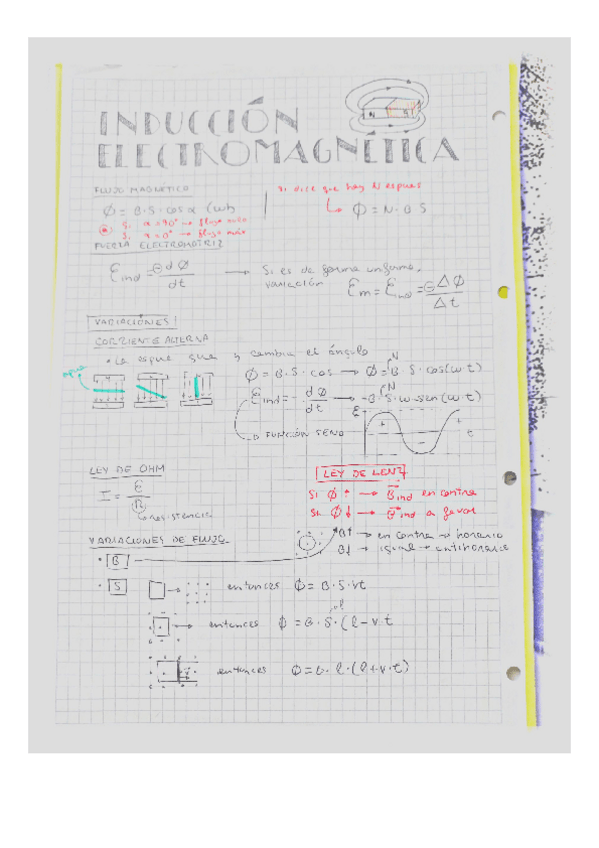 INDUCCIÓN
ELECTROMAGNÉTICA
N S
FLUJO MAGNÉTICO
Si dice que hay N espiras
Φ = B·S·cos α (Wb)
Φ = N·B S
Si α = 90° → flujo nulo
Si α = 0° → flujo máx
FUERZA ELECTROMOTRIZ
Ɛind = - dΦ/dt → Si es de forma uniforme,
variación Ɛm = Ɛind = - ΔΦ/Δt
VARIACIONES
CORRIENTE ALTERNA
• La espira gira y cambia el ángulo
Φ = B·S·cos → Φ = B N S·cos(ω t)
Ɛind = - dΦ/dt → -B·N S·ω·sen(ω t)
→ FUNCIÓN SENO
Ɛ + - t
LEY DE OHM
I = Ɛ/R
→ resistencia
LEY DE LENZ
Si Φ ↑ → Bind en contra
Si Φ ↓ → Bind a favor
VARIACIONES DE FLUJO
B↑ → en contra → horario
B↓ → igual → antihorario
• B
• S → entonces Φ = B·S·vt
→ entonces Φ = B·S·(l - v·t
l
entonces Φ = B·l·(l + v·t)